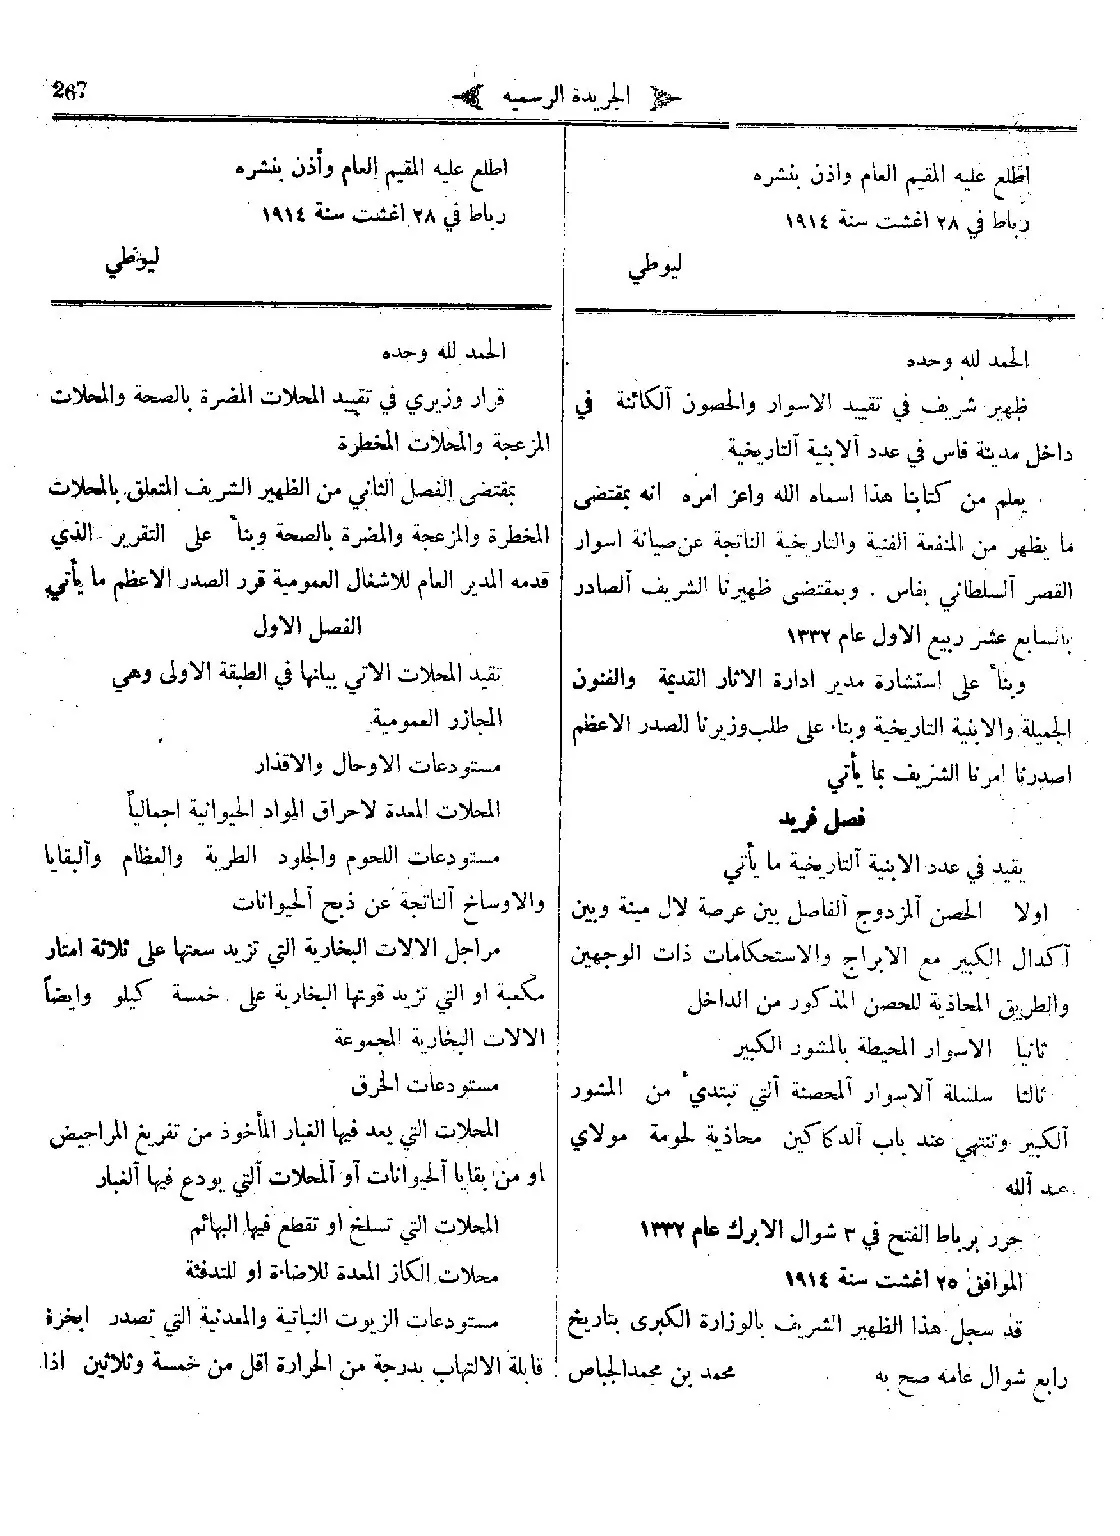 267
الجريدة الرسمية
اطلع عليه المقيم العام واذن بنشره
رباط في ٢٨ اغشت سنة ١٩١٤
ليوطي
الحمد لله وحده
ظهير شريف في تقييد الاسوار والحصون الكائنة في
داخل مدينة فاس في عدد الابنية التاريخية
يعلم من كتابنا هذا اسماه الله واعز امره انه بمقتضى
ما يظهر من المنفعة الفنية والتاريخية الناتجة عن صيانة اسوار
القصر السلطاني بفاس . وبمقتضى ظهيرنا الشريف الصادر
بالسابع عشر ربيع الاول عام ١٣٣٢
وبناً على استشارة مدير ادارة الاثار القديمة والفنون
الجميلة والابنية التاريخية وبناء على طلب وزيرنا الصدر الاعظم
اصدرنا امرنا الشريف بما يأتي
فصل فريد
يقيد في عدد الابنية التاريخية ما يأتي
اولا الحصن المزدوج الفاصل بين عرصة لال مينة وبين
آكدال الكبير مع الابراج والاستحكامات ذات الوجهين
والطريق المحاذية للحصن المذكور من الداخل
ثانيا الاسوار المحيطة بالمشور الكبير
ثالثا سلسلة الاسوار المحصنة التي تبتدئ من المشور
الكبير وتنتهي عند باب الدكاكين محاذية لحومة مولاي
عبد الله
حرر برباط الفتح في ٣ شوال الابرك عام ١٣٣٢
الموافق ٢٥ اغشت سنة ١٩١٤
قد سجل هذا الظهير الشريف بالوزارة الكبرى بتاريخ
رابع شوال عامه صح به محمد بن محمد الجباص
اطلع عليه المقيم العام وأذن بنشره
رباط في ٢٨ اغشت سنة ١٩١٤
ليوطي
الحمد لله وحده
قرار وزيري في تقييد المحلات المضرة بالصحة والمحلات
المزعجة والمحلات المخطرة
بمقتضى الفصل الثاني من الظهير الشريف المتعلق بالمحلات
المخطرة والمزعجة والمضرة بالصحة وبناً على التقرير الذي
قدمه المدير العام للاشغال العمومية قرر الصدر الاعظم ما يأتي
الفصل الاول
تقيد المحلات الاتي بيانها في الطبقة الاولى وهي
المجازر العمومية
مستودعات الاوحال والاقذار
المحلات المعدة لاحراق المواد الحيوانية اجمالياً
مستودعات اللحوم والجلود الطرية والعظام والبقايا
والاوساخ الناتجة عن ذبح الحيوانات
مراجل الالات البخارية التي تزيد سعتها على ثلاثة امتار
مكعبة او التي تزيد قوتها البخارية على خمسة كيلو وايضاً
الالات البخارية المجموعة
مستودعات الخرق
المحلات التي يعد فيها الغبار المأخوذ من تفريغ المراحيض
او من بقايا الحيوانات أو المحلات التي يودع فيها الغبار
المحلات التي تسلخ او تقطع فيها البهائم
محلات الكاز المعدة للاضاءة او للتدفئة
مستودعات الزيوت النباتية والمعدنية التي تصدر ابخرة
قابلة الالتهاب بدرجة من الحرارة اقل من خمسة وثلاثين اذا